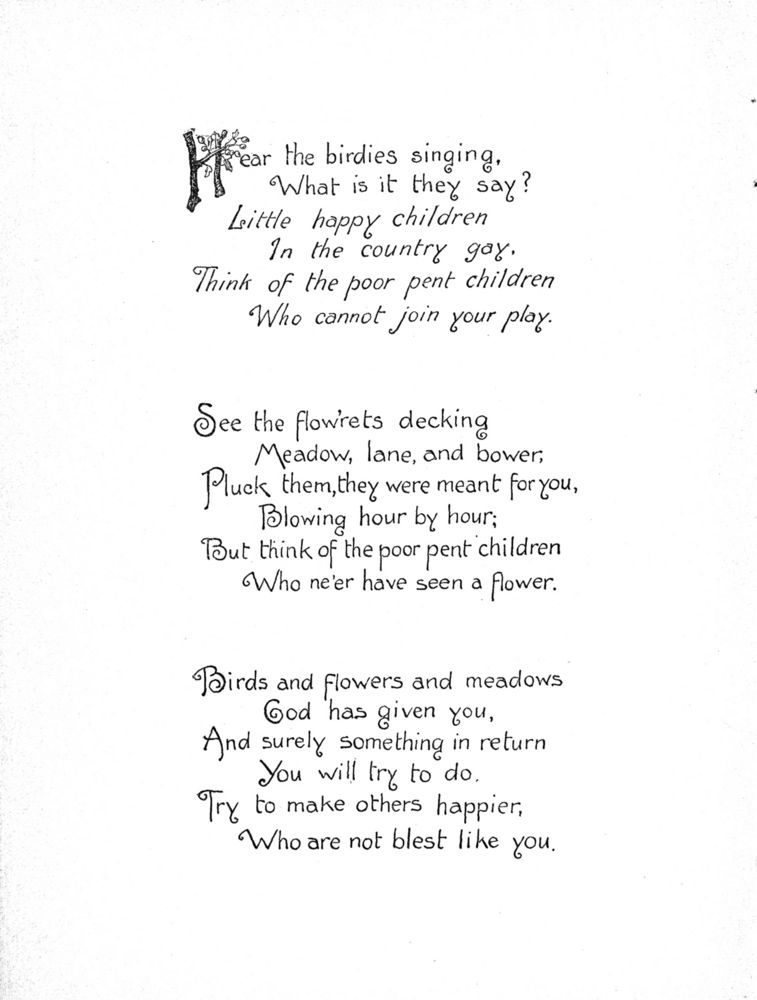 Hear the birdies singing,
What is it they say?
Little happy children
In the country gay,
Think of the poor pent children
Who cannot join your play.
See the flow'rets decking
Meadow, lane, and bower;
Pluck them, they were meant for you,
Blowing hour by hour;
But think of the poor pent children
Who ne'er have seen a flower.
Birds and flowers and meadows
God has given you,
And surely something in return
You will try to do.
Try to make others happier,
Who are not blest like you.